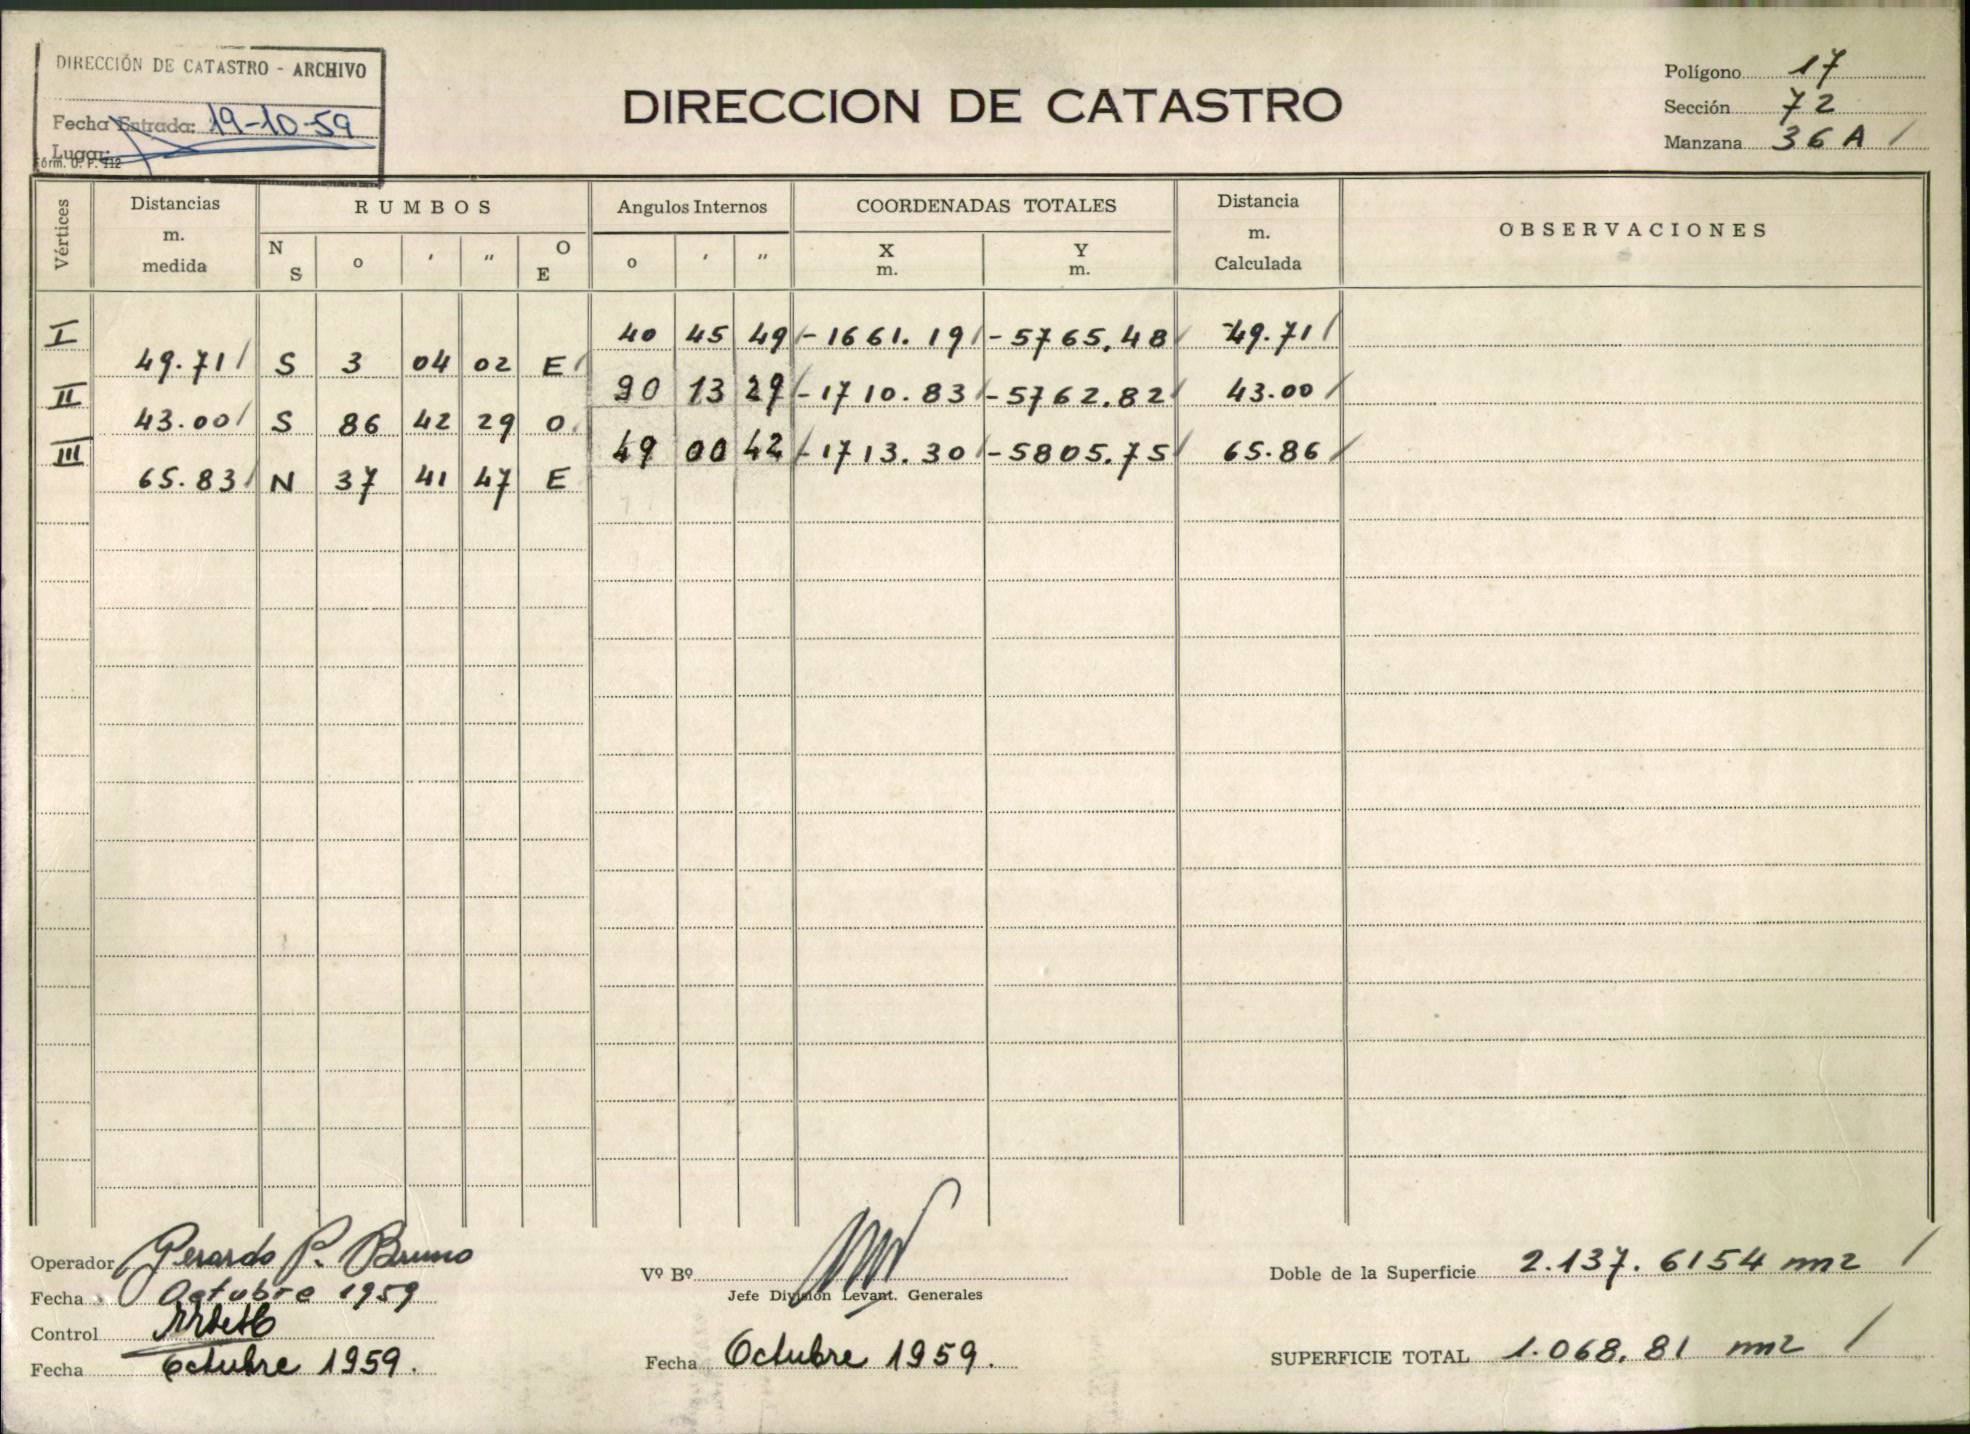 DIRECCIÓN DE CATASTRO - ARCHIVO
Fecha Entrada: 19-10-59
Lugar:
Fórm. O. P. 112
DIRECCION DE CATASTRO
Polígono 17
Sección 72
Manzana 36 A /
Vértices Distancias m. medida RUMBOS N S o ' " O E Angulos Internos o ' " COORDENADAS TOTALES X m. Y m. Distancia m. Calculada OBSERVACIONES
I 40 45 49 / -1661.19 / -5765.48 / 49.71 /
49.71 / S 3 04 02 E /
II 90 13 29 / -1710.83 / -5762.82 / 43.00 /
43.00 / S 86 42 29 O
III 49 00 42 / -1713.30 / -5805.75 / 65.86 /
65.83 / N 37 41 47 E
Operador Gerardo P. Bruno
Fecha Octubre 1959
Control
Fecha Octubre 1959.
Vº Bº
Jefe División Levant. Generales
Fecha Octubre 1959.
Doble de la Superficie 2.137.6154 m2 /
SUPERFICIE TOTAL 1.068,81 m2 /